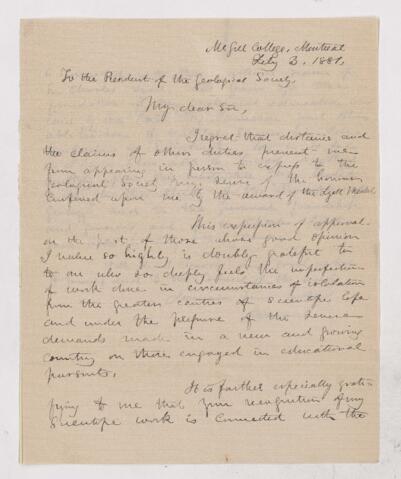 McGill College, Montreal
Feby 3. 1881.
To the President of the Geological Society.
My dear Sir,
I regret that distance and
the claims of other duties prevent me
from appearing in person to express to the
Geological Society my sense of the honour
conferred upon me by the award of the Lyell Medal.
This expression of approval
on the part of those whose good opinion
I value so highly is doubly grateful to
one who so deeply feels the imperfection
of work done in circumstances of isolation
from the greater centres of scientific life
and under the pressure of the
demands made in a new and growing
country on those engaged in educational
pursuits.
It is further especially grati-
fying to me that your recognition of my
scientific work is connected with the